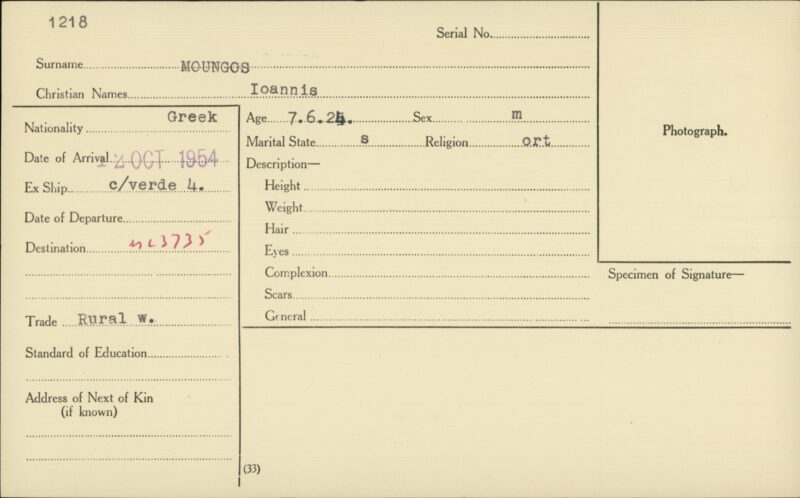 1218
Serial No.
Surname MOUNGOS
Christian Names Ioannis
Nationality Greek
Age 7.6.24. Sex m
Marital State s Religion ort
Date of Arrival 12 OCT 1954
Description—
Ex Ship c/verde 4.
Height
Weight
Date of Departure
Hair
Destination 3735
Eyes
Complexion
Scars
General
Trade Rural w.
Standard of Education
Address of Next of Kin
(if known)
(33)
Photograph.
Specimen of Signature—